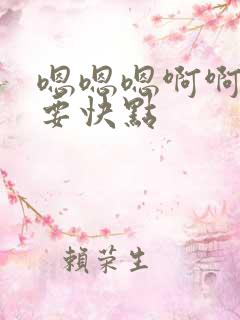 嗯嗯嗯啊啊
要快點
賴荣生